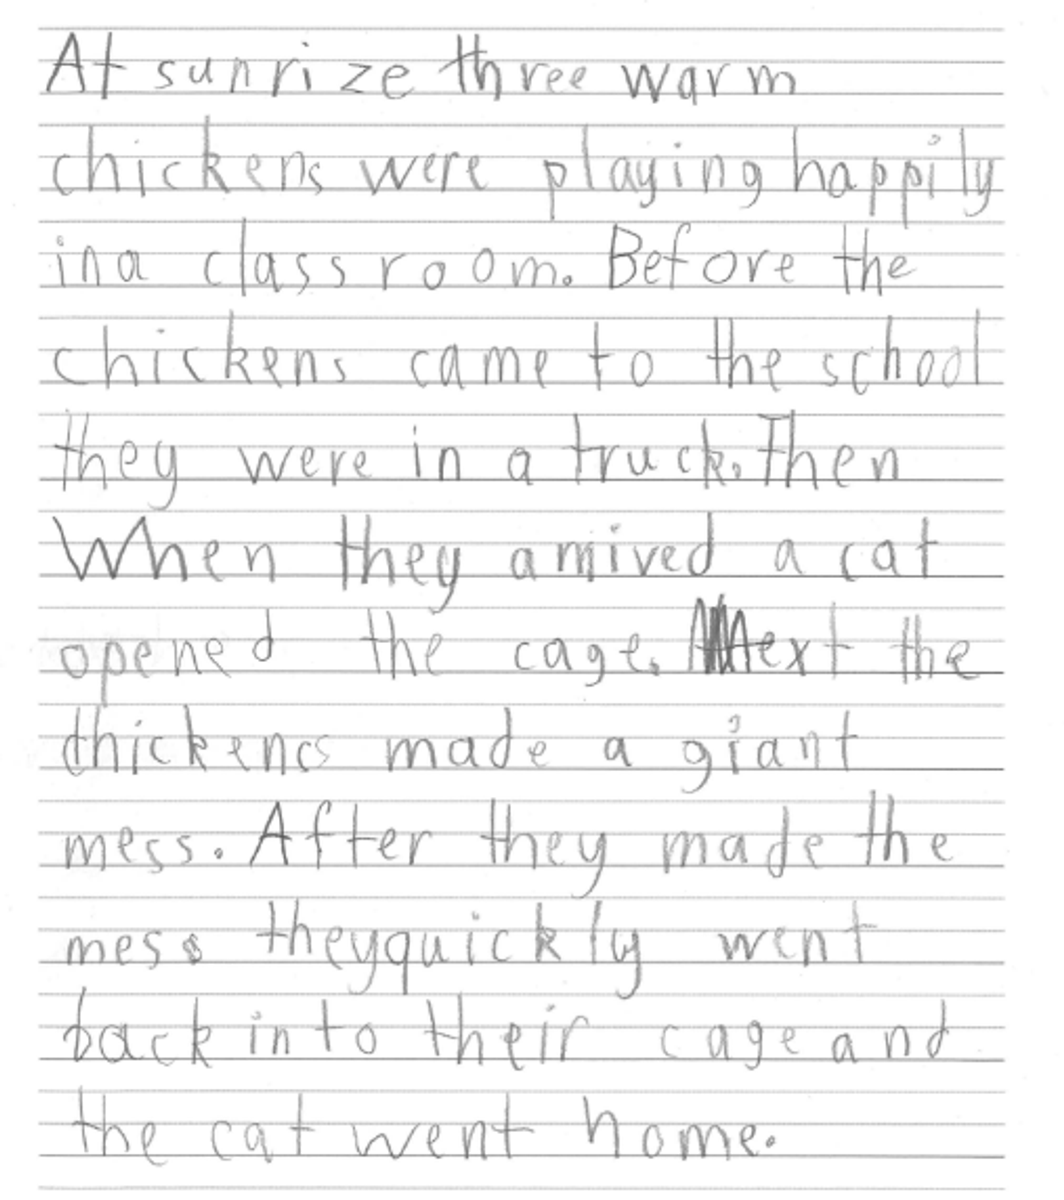 At sunrize three warm
chickens were playing happily
in a classroom. Before the
chickens came to the school
they were in a truck. Then
When they arrived a cat
opened the cage. Next the
chickens made a giant
mess. After they made the
mess they quickly went
back into their cage and
the cat went home.